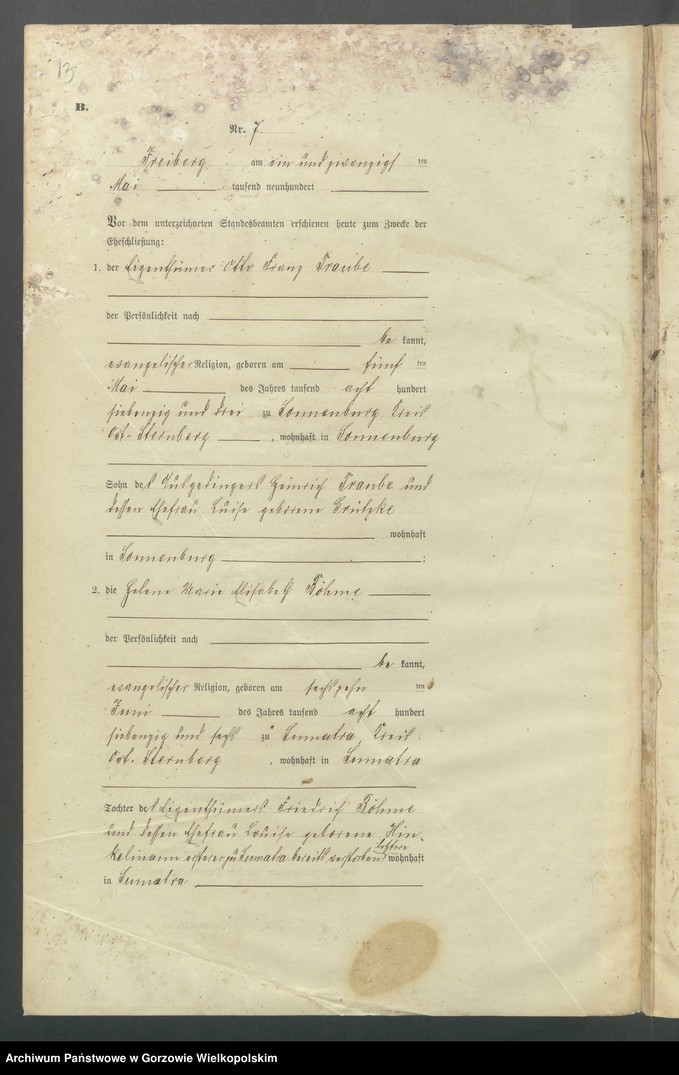 13
B.
Nr. 7.
Freiberg am ein und zwanzigsten
Mai tausend neunhundert
Vor dem unterzeichneten Standesbeamten erschienen heute zum Zwecke der
Eheschließung:
1. der Eigenthümer Otto Franz Traube
der Persönlichkeit nach
be kannt,
evangelischer Religion, geboren am fünf ten
Mai des Jahres tausend acht hundert
siebenzig und drei zu Sonnenburg, Kreis
Ost-Sternberg, wohnhaft in Sonnenburg
Sohn des Ausgedingers Heinrich Traube und
dessen Ehefrau Luise geborene Grützke
wohnhaft
in Sonnenburg ;
2. die Helene Marie Elisabeth Böhme
der Persönlichkeit nach
be kannt,
evangelischer Religion, geboren am sechszehn ten
Juni des Jahres tausend acht hundert
siebenzig und sechs zu Sumatra, Kreis
Ost-Sternberg, wohnhaft in Sumatra
Tochter des Eigenthümers Friedrich Böhme
und dessen Ehefrau Louise geborene Hin-
kelmann ersterer zu Sumatra bereits verstorben letztere wohnhaft
in Sumatra
Archiwum Państwowe w Gorzowie Wielkopolskim